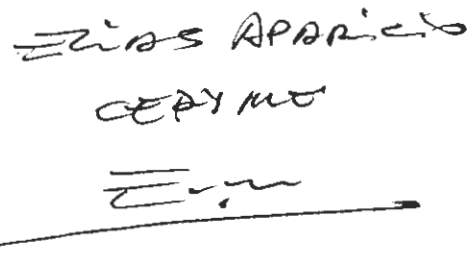 ELIAS APARICIO
CEPYME